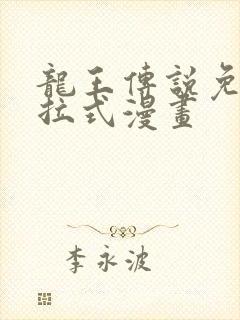 龍王傳說免
拉式漫畫
李永波